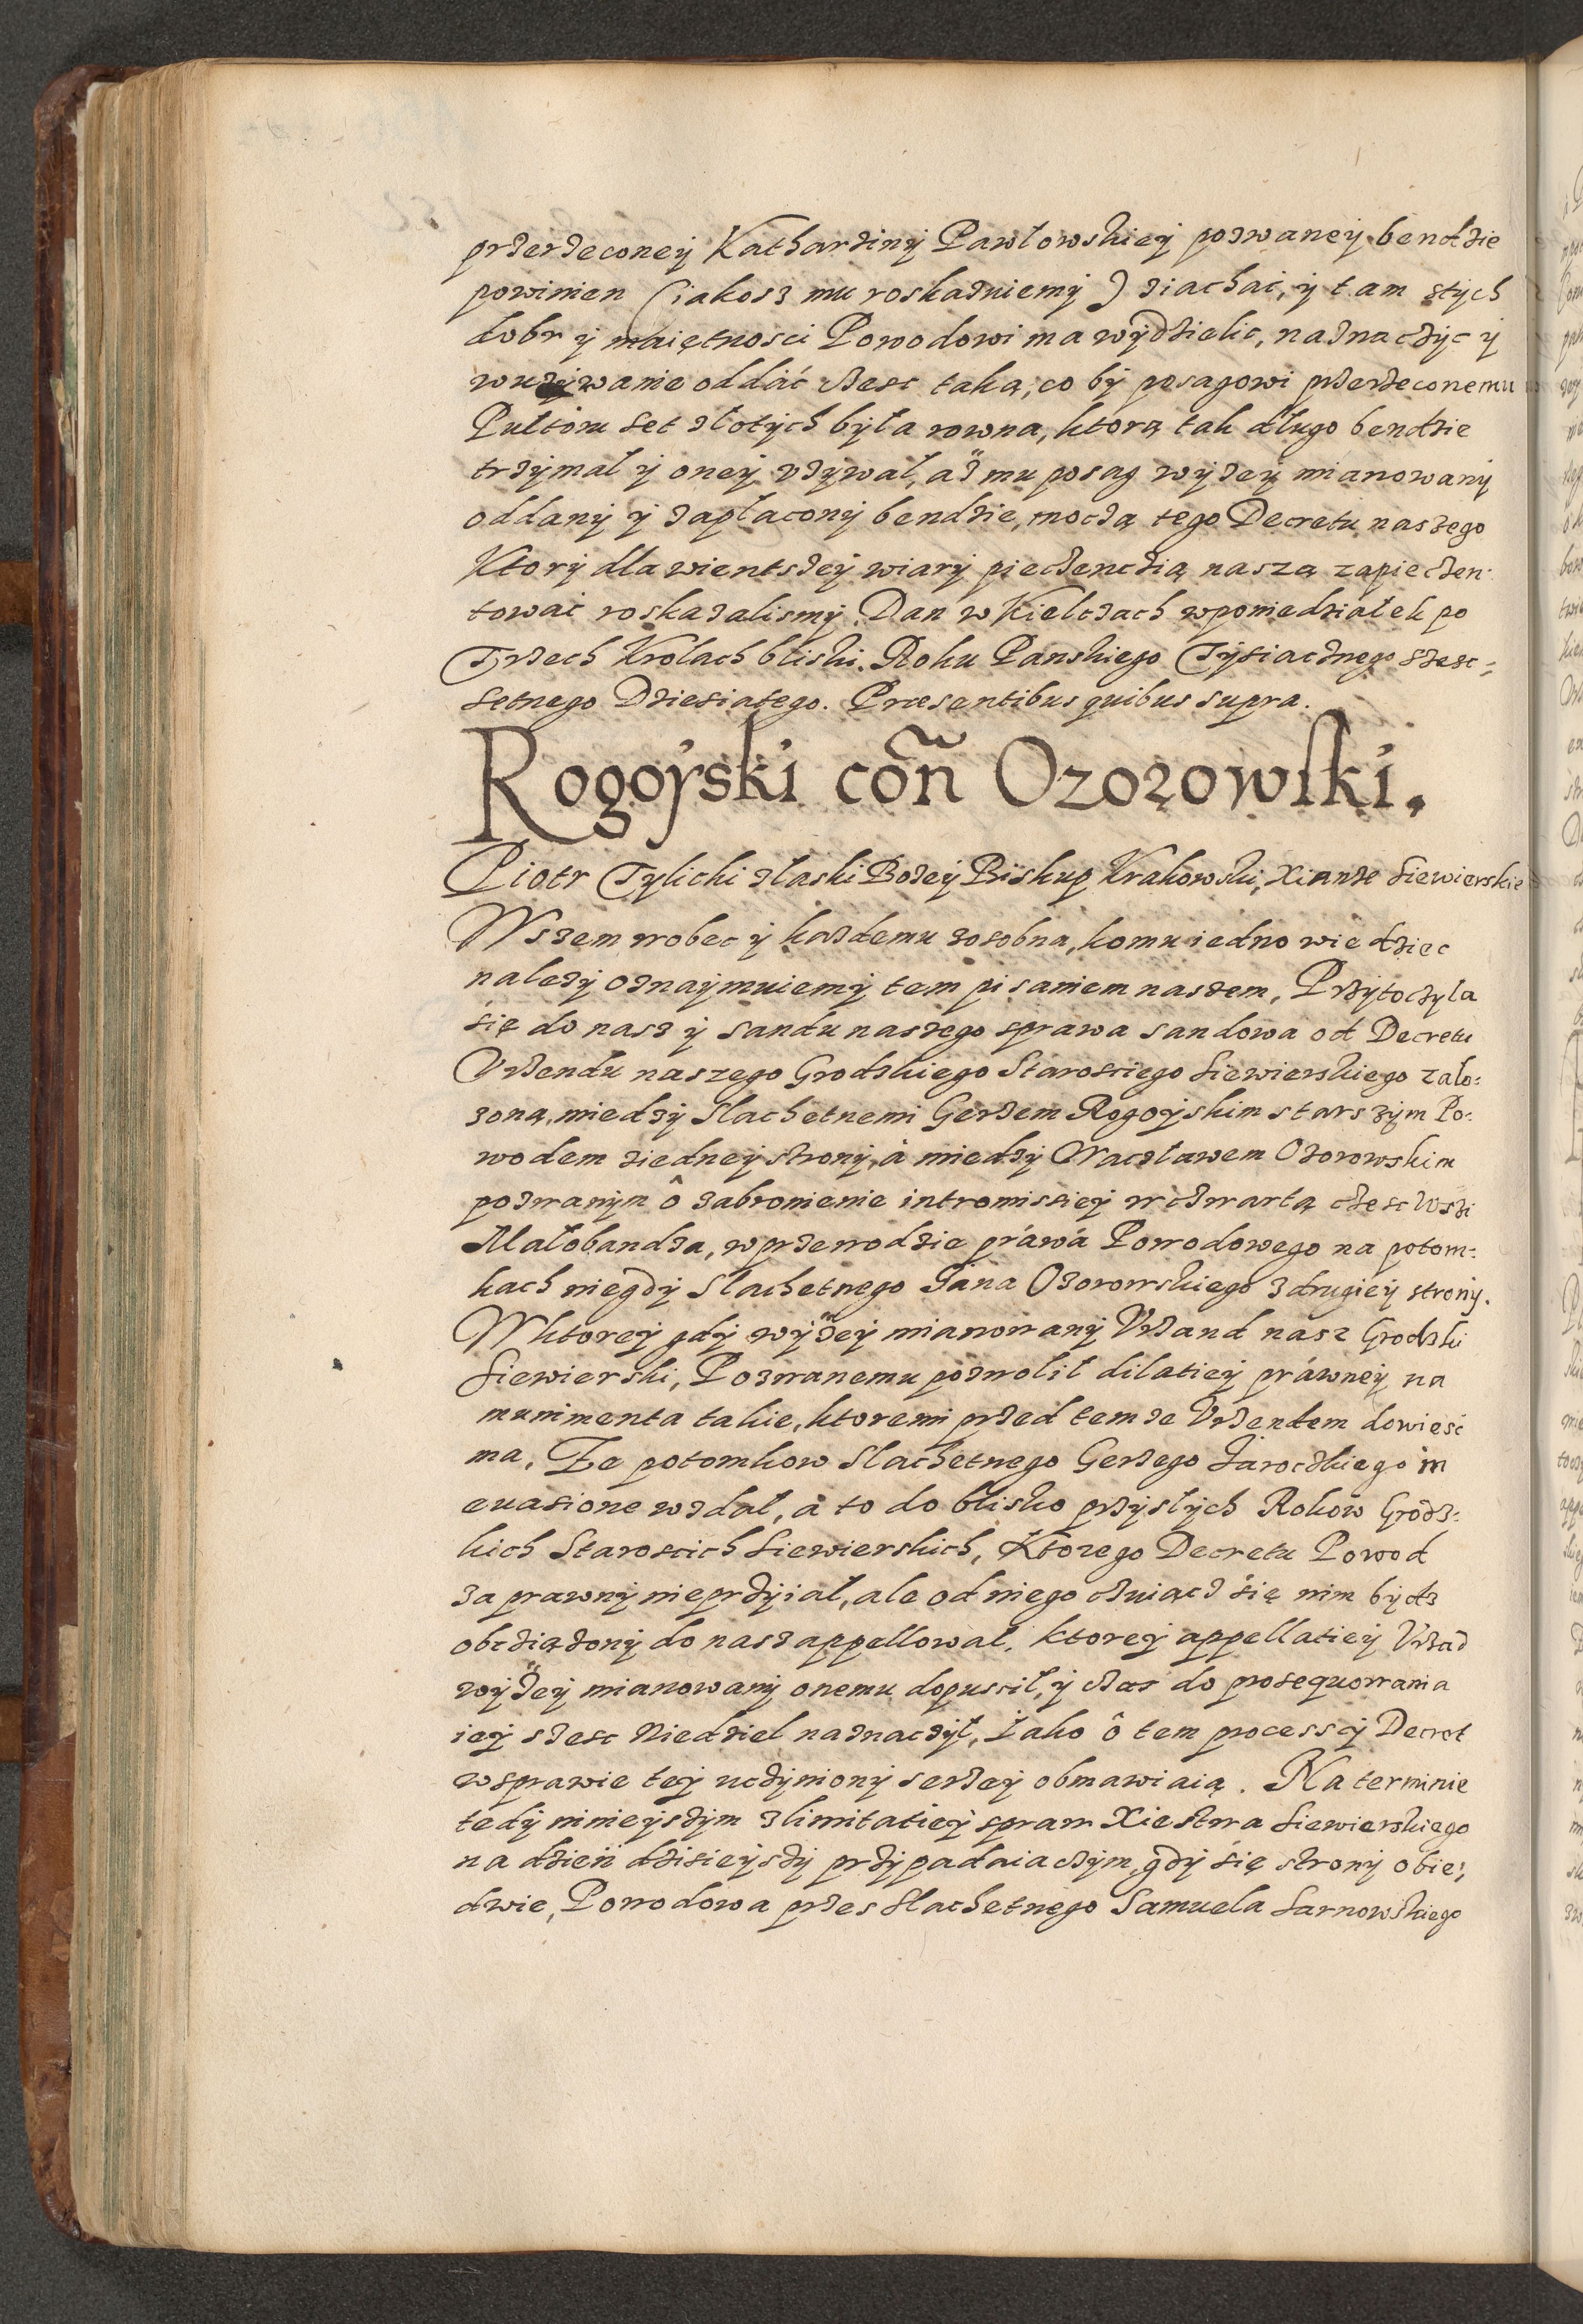 przerzeconeÿ Katharzinÿ Pawłowskieÿ pozwaneÿ bendzie
powinien (iakosz mu roskazuiemÿ) ziachać, ÿ tam stych
dobr ÿ maiętnosci Powodowi ma wÿdzielic, naznaczÿc ÿ
wuzÿwanie oddáć czesc taką, co bÿ posagowi przerzeconemu
Pułtoru set złotÿch bÿła rowna, ktorą tak długo bendzie
trzÿmał ÿ oneÿ vzÿwał, aż mu posag wÿzeÿ mianowanÿ
oddanÿ ÿ zapłaconÿ bendzie, moczą tego Decretu naszego
Ktorÿ dla wientszeÿ wiarÿ pieczenczią naszą zapieczen-
towaić roskazalismÿ. Dan w Kielczach wponiedziałek po
Trzech Krolach bliski. Roku Panskiego Tÿsiacznego szesc=
setnego Dziesiatego. Præsentibus quibus supra.
Rogoÿski coñ Ozorowski.
Piotr Tylicki złaski Bozeÿ Biskup Krakowski, Xianze Siewierskie
Wszem wobec ÿ kazdemu zosobna, komu iedno wiedziec
nalezÿ oznaÿmuiemÿ tem pisaniem naszem, Przÿtoczÿla
się do nasz ÿ sandu naszego sprawa sandowa od Decretu
Vrzendu naszego Grodskiego Starosciego Siewierskiego zało:
zoną, miedzÿ Slachetnemi Gerzem Rogoÿskim starszÿm Po:
wodem ziedneÿ stronÿ, à miedzÿ Wacsławem Ozorowskim
pozwanÿm ô zabronienie intromissieÿ wczwartą częsc Wszi
Małobandza, wprzewodzie práwá Powodowego na potom:
kach niegdÿ Slachetnego Jana Ozorowskiego zdrugieÿ stronÿ.
Wktoreÿ gdÿ wÿżeÿ mianowanÿ Vrzand nasz Grodzki
Siewierski, Pozwanemu pozwolił dilatieÿ práwneÿ na
munimenta takie, ktoremi przed temze Vrzendem dowieść
ma, Ze potomkow Slachetnego Gerzego Jaroczkiego in
euasione wzdał, à to do blisko przÿsłÿch Rokow Grodz:
kich Staroscich Siewierskich, Ktorego Decretu Powod
za prawnÿ nieprzÿiał, ale od niego czuiącz się nim bydz
obcziązonÿ do nasz appellował, ktoreÿ appellatieÿ Vrzad
wÿżeÿ mianowanÿ onemu dopuscił, ÿ czas do prosequowania
ieÿ szesc Niedziel naznaczÿł, Iako ô tem process ÿ Decret
wsprawie teÿ uczÿnionÿ serzeÿ obmawiaią. Na terminie
tedÿ ninieÿszÿm zlimitatieÿ spraw Xiestwa Siewierskiego
na dzień dzisieÿszÿ przÿpadaiaczÿm, gdÿ się stronÿ obie:
dwie, Powodowa przes Slachetnego Samuela Sarnowskiego